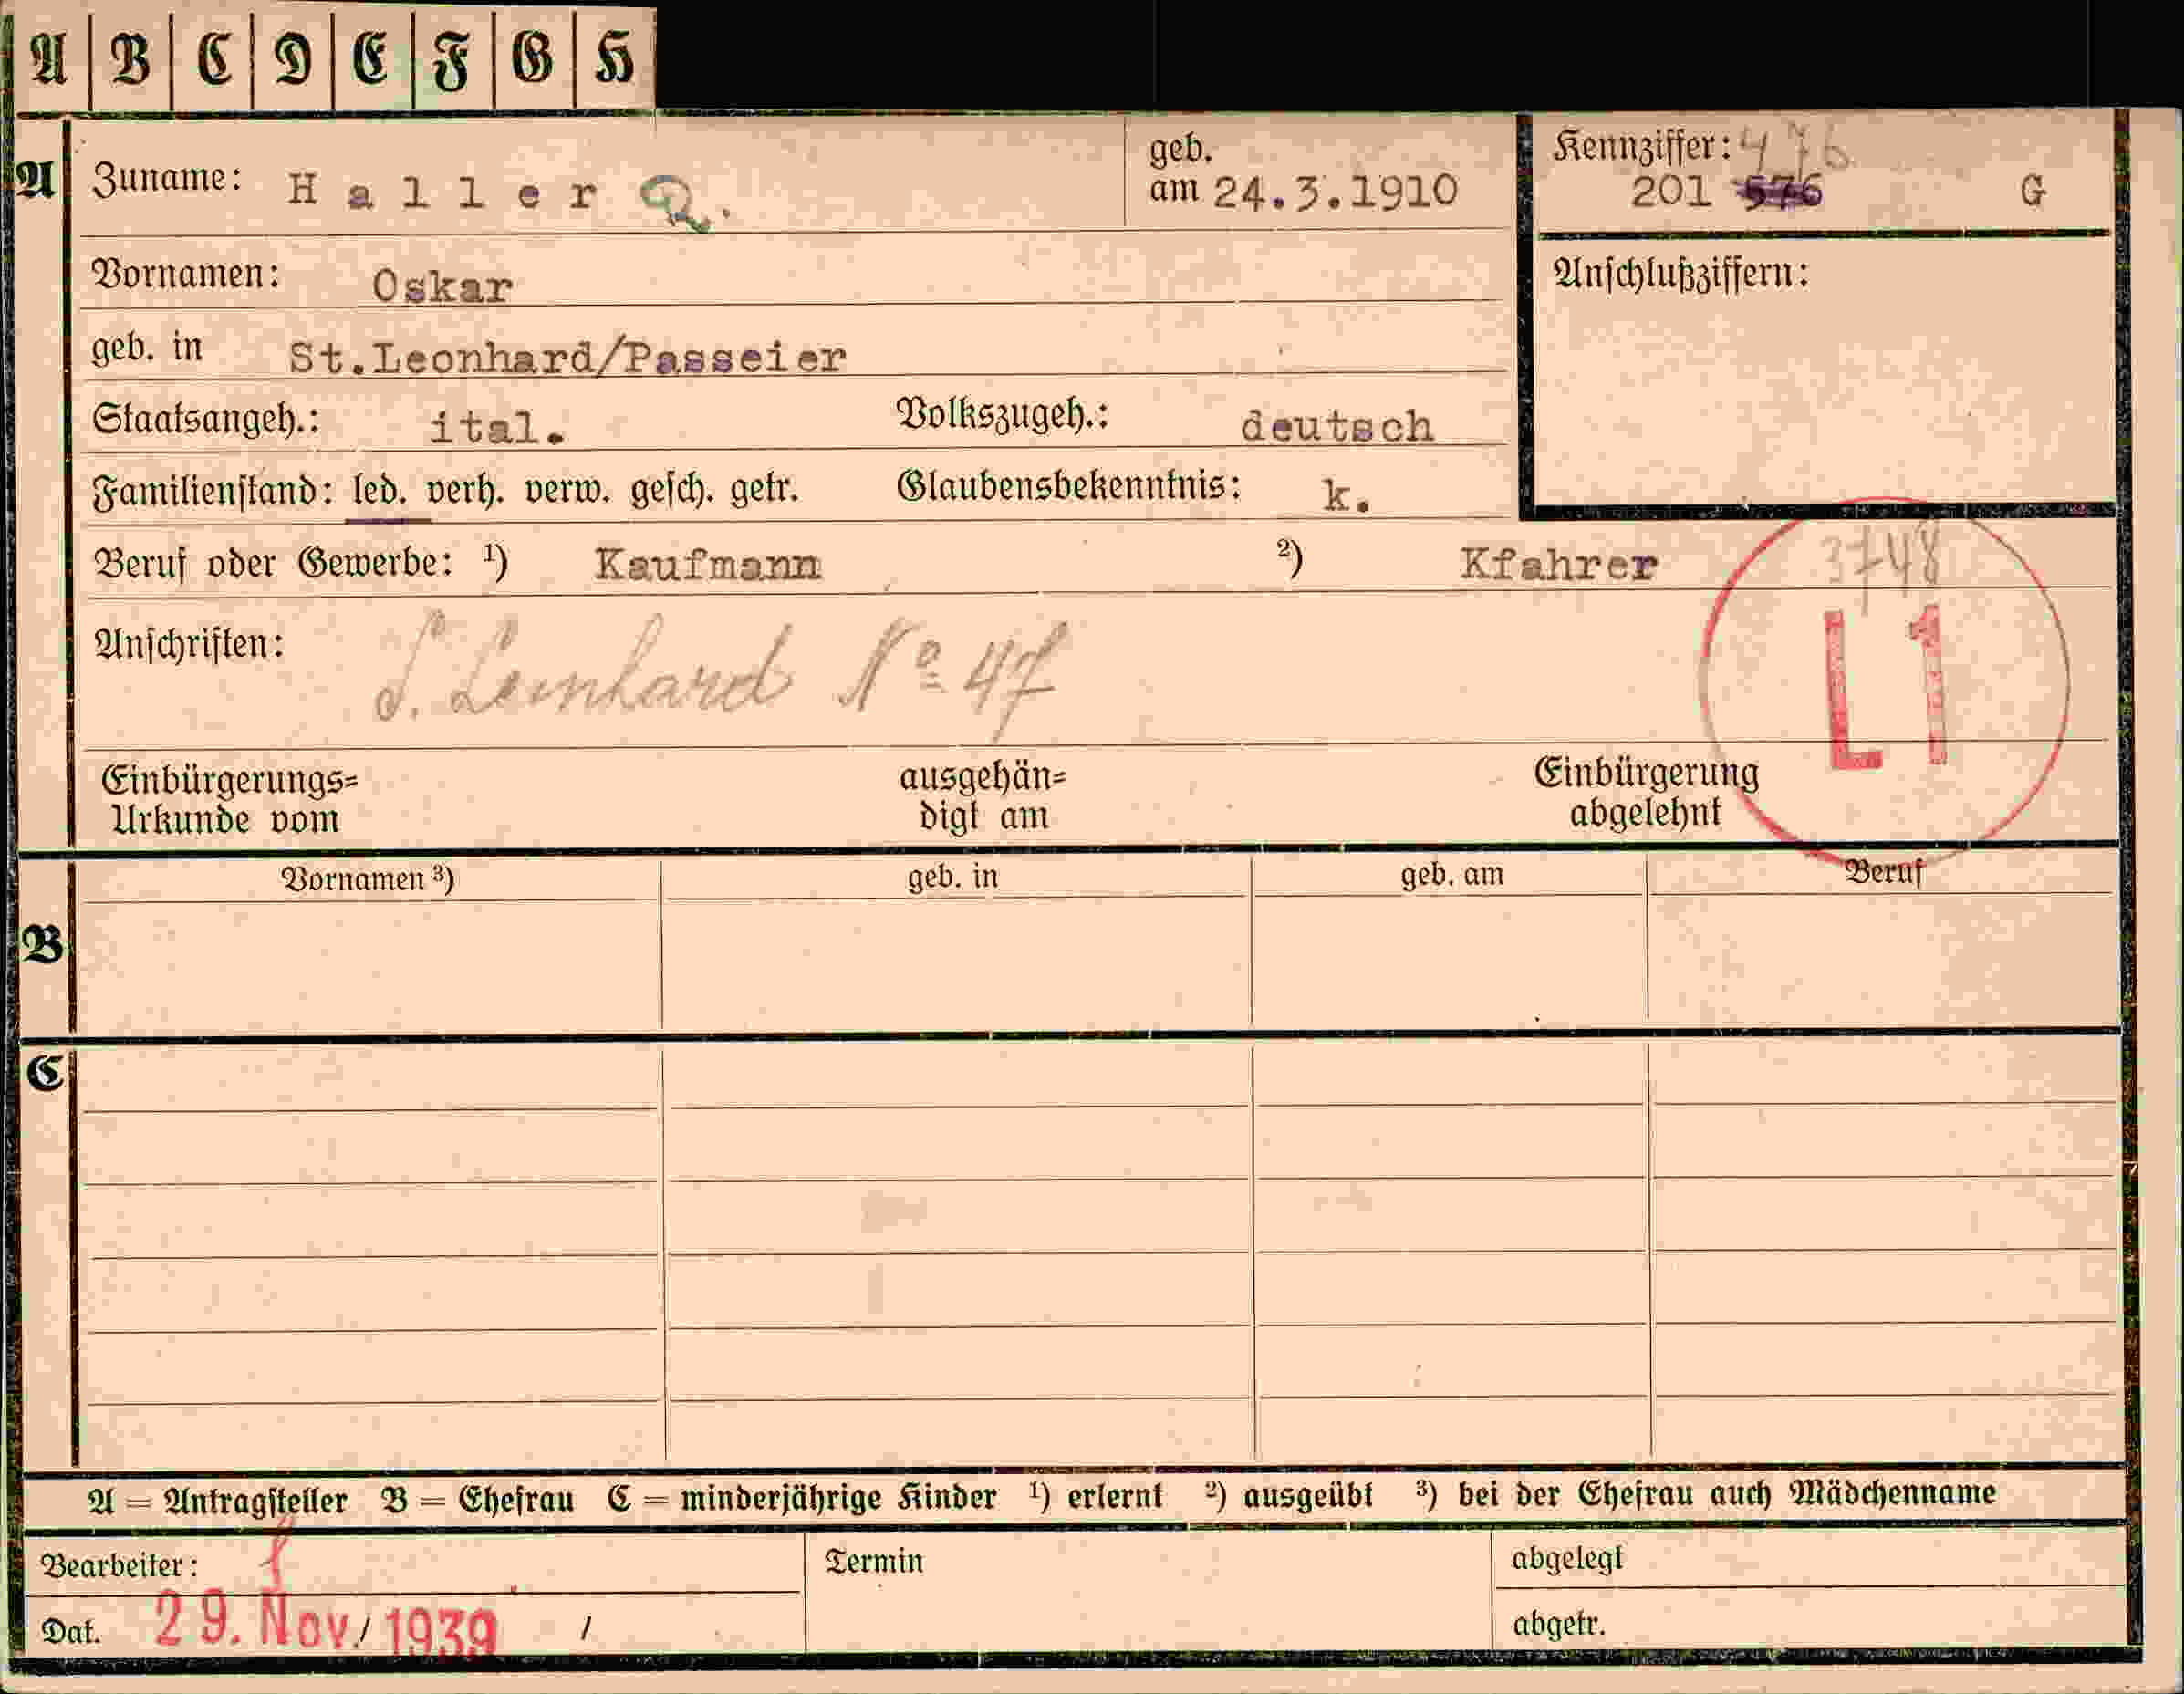 A B C D E F G H
A Zuname: Haller Q. geb. am 24.3.1910 Kennziffer: 476
201 576 G
Vornamen: Oskar Anschlußziffern:
geb. in St.Leonhard/Passeier
Staatsangeh.: ital. Volkszugeh.: deutsch
Familienstand: led. verh. verw. gesch. getr. Glaubensbekenntnis: k.
Beruf oder Gewerbe: ¹) Kaufmann ²) Kfahrer 3748
Anschriften: S. Leonhard Nº 47 L1
Einbürgerungs= ausgehän= Einbürgerung
Urkunde vom digt am abgelehnt
Vornamen ³) geb. in geb. am Beruf
B
C
A = Antragsteller B = Ehefrau C = minderjährige Kinder ¹) erlernt ²) ausgeübt ³) bei der Ehefrau auch Mädchenname
Bearbeiter: Termin abgelegt
Dat. 29. Nov. / 1939 / abgetr.